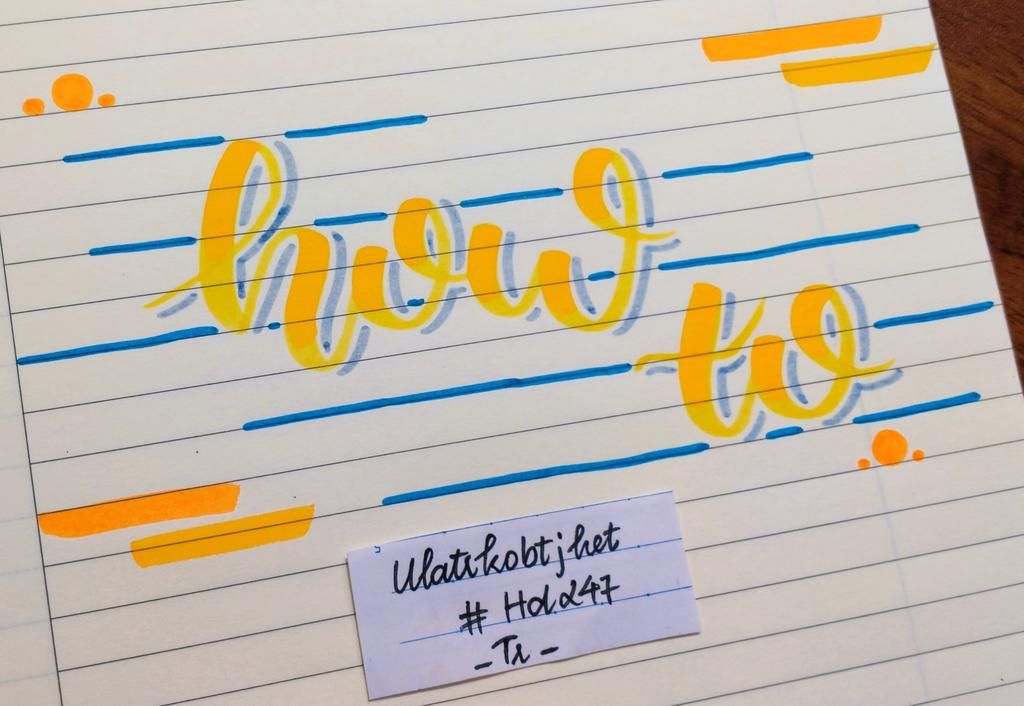 how
to
Ulatikobtjhet
# Hdα247
-Tr-